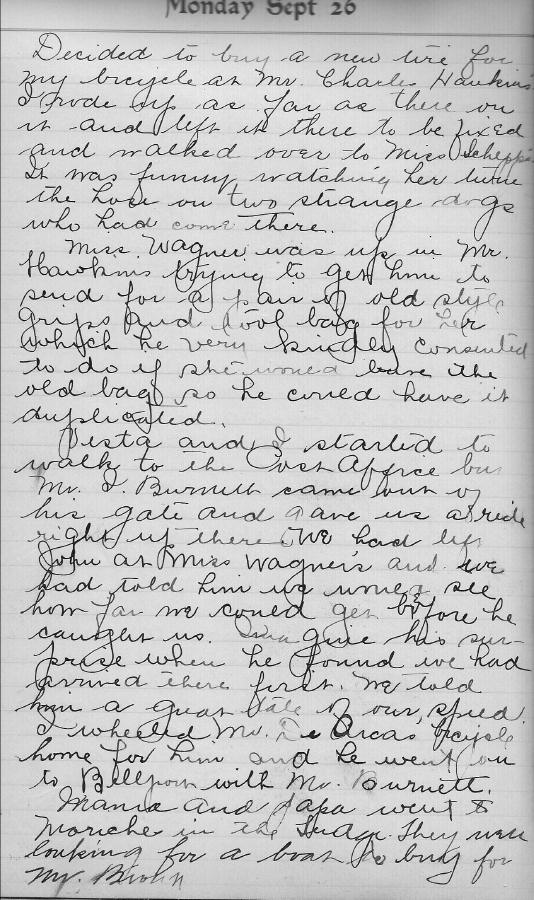 Monday Sept 26
Decided to buy a new tire for
my bicycle at Mr. Charles Hawkins.
I rode up as far as there on
it and left it there to be fixed
and walked over to Miss Schepp's
It was funny watching her turn
the hose on two strange dogs
who had come there.
Miss. Wagner was up in Mr.
Hawkins trying to get him to
send for a pair of old style
grips and tool bag for her
which he very kindly consented
to do if she would leave the
old bag so he could have it
duplicated.
Vesta and I started to
walk to the Post Office but
Mr. I. Burnett came out of
his gate and gave us a ride
right up there. We had left
John at Miss Wagner's and we
had told him we would see
how far we could get before he
caught us. Imagine his sur-
prise when he found we had
arrived there first. We told
him a great tale of our speed.
I wheeled Mr. De Arcas bicycle
home for him and he went on
to Bellport with Mr. Burnett.
Mama and Papa went to
Moriche in the They were
looking for a boat to buy for
Mr. Brown